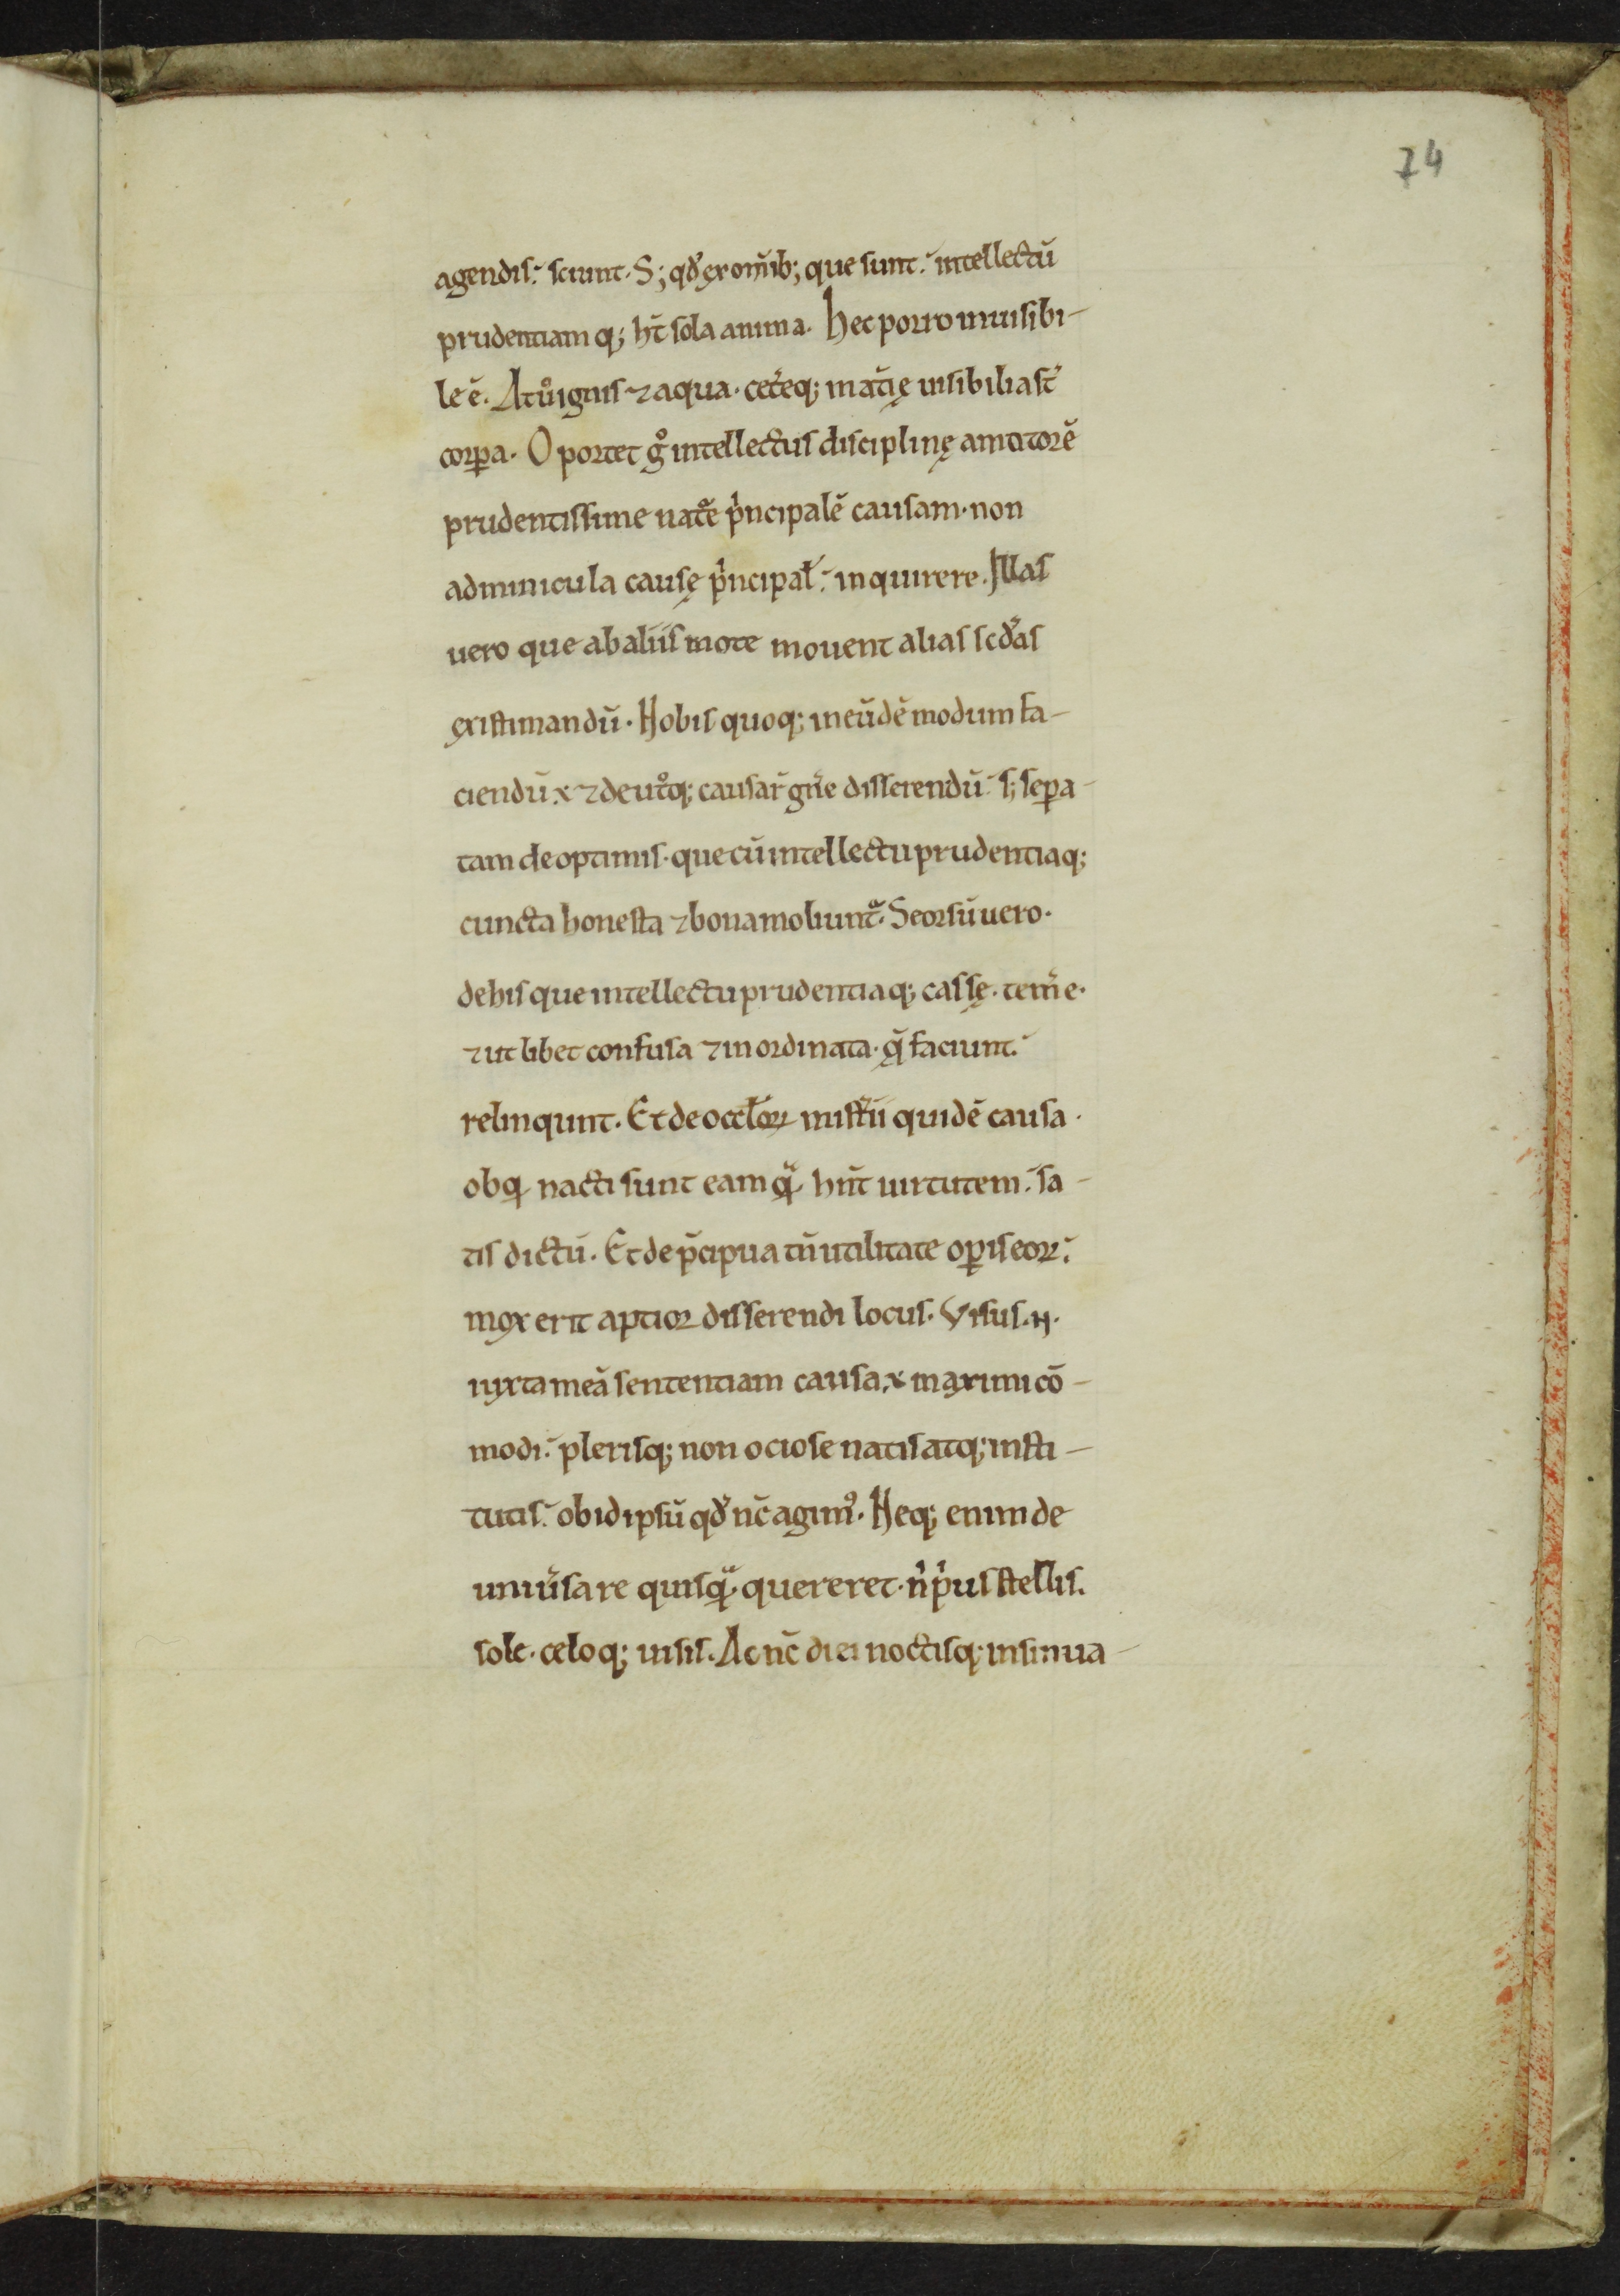 74
agendis. sciunt. S; qđ ex om̄ib; que sunt. intellectū
prudentiam q; ħt sola anima. hec porro inuisibi-
le ē. At uͦ ignis ⁊ aqua. cet̄eq; mat̄ię uisibilia st̄
corꝑa. Oportet gͦ intellectus disciplinę amatorē
prudentissime natͤ͛e pͥncipalē causam. non
adminicula causę pͥncipał. inquirere. Illas
uero que ab aliis mote mouent alias scđas
existimandū. Nobis quoq; in eūdē modum fa-
ciendū. ⁊ de utͦq; causaꝝ gn̄e disserendū. s; sepa-
tam de optimis. que cū intellectu prudentiaq;
cuncta honesta ⁊ bona moliunt᷑. Seorsū uero.
de his que intellectu prudentiaq; cassę. tem̄e.
⁊ ut libet confusa ⁊ inordinata. q̄ faciunt.
relinqunt. Et de oc̄loꝝ mist̄ii quidē causa.
ob q̄ nacti sunt eam qͣ hn̄t uirtutem. sa-
tis dictū. Et de p̄cipua tū utilitate oꝑis eoꝝ.
mox erit aptior disserendi locus. Visus. n.
iuxta meā sententiam causa. maximi cō-
modi. plerisq; non ociose natis atq; insti-
tutis. ob id ipsū qđ nc̄ agimꝰ. Neq; enim de
uniūsa re quisqͣ quereret. nͥ pͥus stellis.
sole. celoq; uisis. Ac nc̄ diei noctisq; insinua-